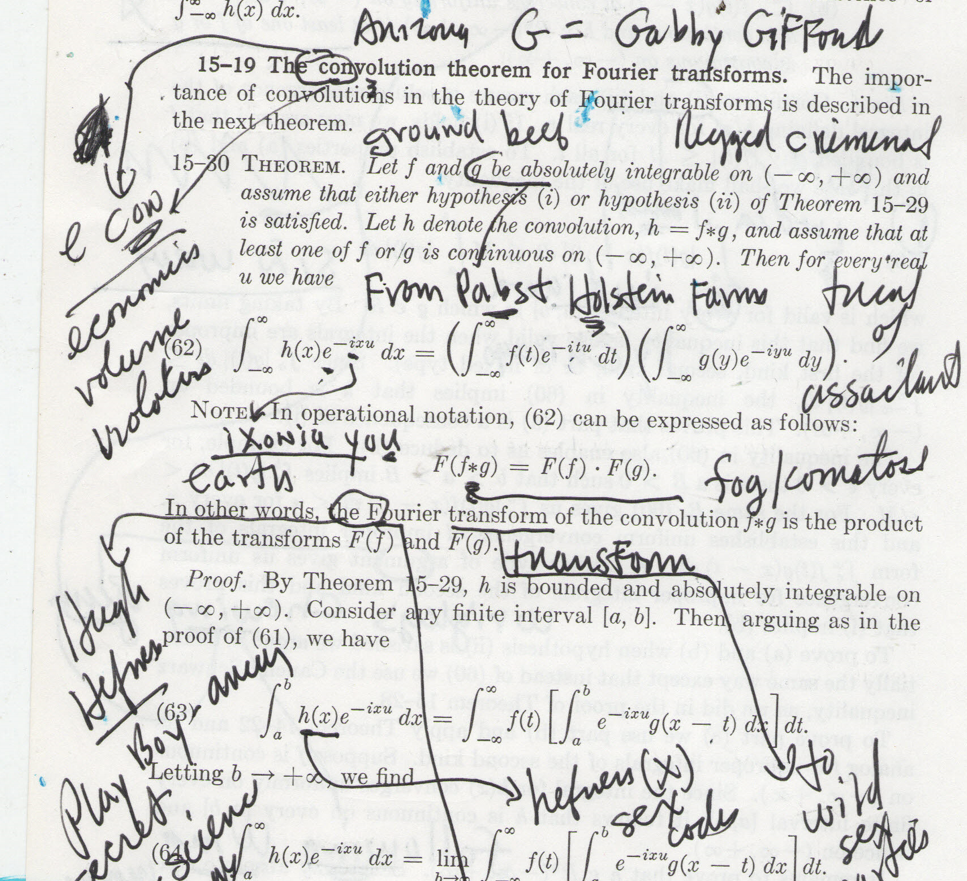 ∫_{-∞}^{∞} h(x) dx.
Arizona G = Gabby Giffond
15–19 The convolution theorem for Fourier transforms. The impor-
tance of convolutions in the theory of Fourier transforms is described in
the next theorem.
ground beef
legged criminal
15–30 THEOREM. Let f and g be absolutely integrable on (−∞, +∞) and
assume that either hypothesis (i) or hypothesis (ii) of Theorem 15–29
is satisfied. Let h denote the convolution, h = f*g, and assume that at
least one of f or g is continuous on (−∞, +∞). Then for every real
u we have
e Cow
economics
volume
From Pabst Holstein Farms
of
assailant
(62) ∫_{-∞}^{∞} h(x)e^{-ixu} dx = (∫_{-∞}^{∞} f(t)e^{-itu} dt) (∫_{-∞}^{∞} g(y)e^{-iyu} dy).
NOTE. In operational notation, (62) can be expressed as follows:
you
earth
F(f*g) = F(f) · F(g).
fog/comatose
In other words, the Fourier transform of the convolution f*g is the product
of the transforms F(f) and F(g).
transform
Proof. By Theorem 15–29, h is bounded and absolutely integrable on
(−∞, +∞). Consider any finite interval [a, b]. Then, arguing as in the
proof of (61), we have
Hugh
Hefner
(63) ∫_a^b h(x)e^{-ixu} dx = ∫_{-∞}^{∞} f(t) [∫_a^b e^{-ixu}g(x − t) dx] dt.
Letting b → +∞, we find
Play Boy
secret
Science
hefners (x)
sex code
wild
sex
(64) ∫_a^∞ h(x)e^{-ixu} dx = lim_{b→∞} ∫_{-∞}^{∞} f(t) [∫_a^b e^{-ixu}g(x − t) dx] dt.